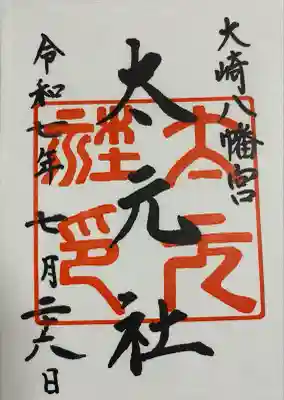 大崎八幡宮
太元社
太元社印
令和七年七月二六日